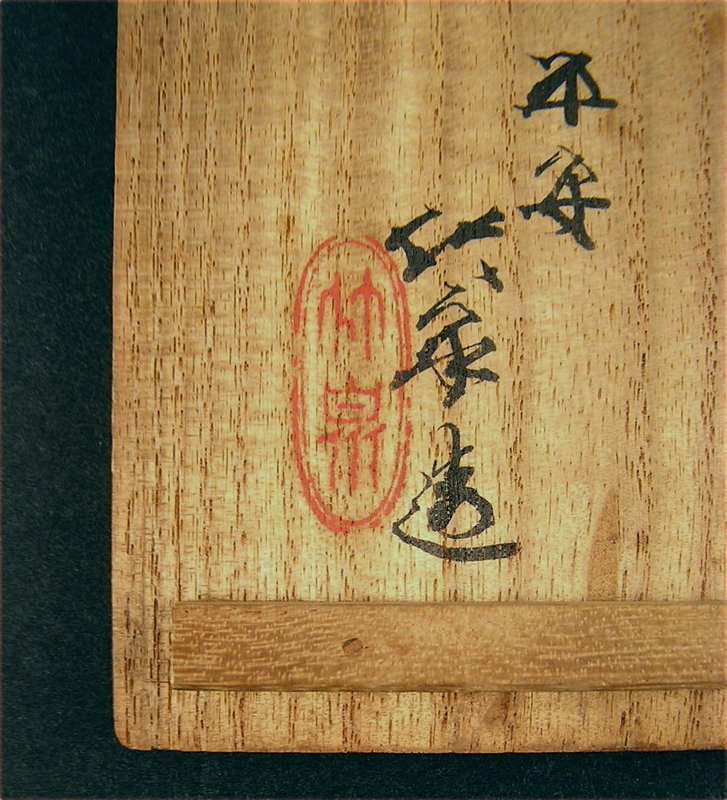 平安
竹泉造
竹泉